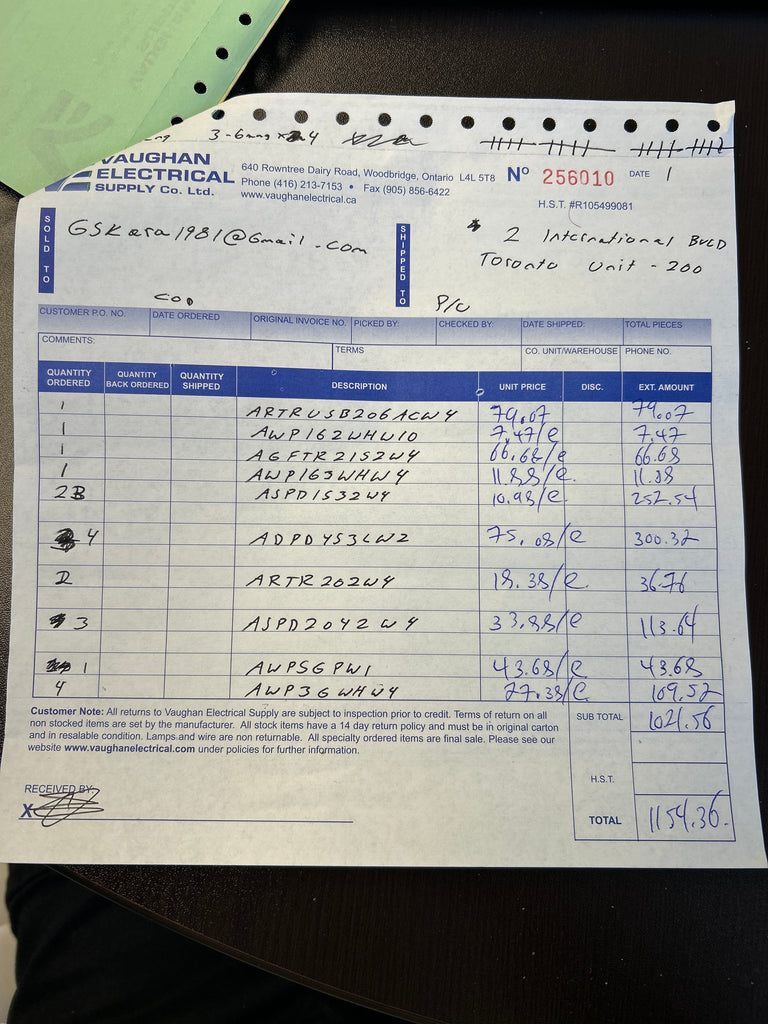 3-6mg x 4
VAUGHAN
ELECTRICAL
SUPPLY Co. Ltd.
640 Rowntree Dairy Road, Woodbridge, Ontario L4L 5T8
Phone (416) 213-7153 • Fax (905) 856-6422
www.vaughanelectrical.ca
Nº 256010 DATE
H.S.T. #R105499081
SOLD TO
GSKara1981@Gmail.com
COD
SHIPPED TO
2 International BLVD
Toronto Unit - 200
P/U
CUSTOMER P.O. NO. DATE ORDERED ORIGINAL INVOICE NO. PICKED BY: CHECKED BY: DATE SHIPPED: TOTAL PIECES
COMMENTS: TERMS CO. UNIT/WAREHOUSE PHONE NO.
QUANTITY ORDERED QUANTITY BACK ORDERED QUANTITY SHIPPED DESCRIPTION UNIT PRICE DISC. EXT. AMOUNT
1 ARTRUSB206ACW4 79.07 79.07
1 AWP162WHW10 7.47/e 7.47
1 AGFTR2152W4 66.68/e 66.68
1 AWP163WHW4 11.88/e. 11.88
23 ASPD1532W4 10.98/e. 252.54
4 ADPD453LW2 75.08/e 300.32
2 ARTR202W4 18.38/e. 36.76
3 ASPD2042W4 33.88/e 113.64
1 AWPSGPW1 43.68/e 43.68
4 AWP3GWHW4 27.38/e. 109.52
Customer Note: All returns to Vaughan Electrical Supply are subject to inspection prior to credit. Terms of return on all
non stocked items are set by the manufacturer. All stock items have a 14 day return policy and must be in original carton
and in resalable condition. Lamps and wire are non returnable. All specialty ordered items are final sale. Please see our
website www.vaughanelectrical.com under policies for further information.
SUB TOTAL 1021.56
H.S.T.
RECEIVED BY
X
TOTAL 1154.36.